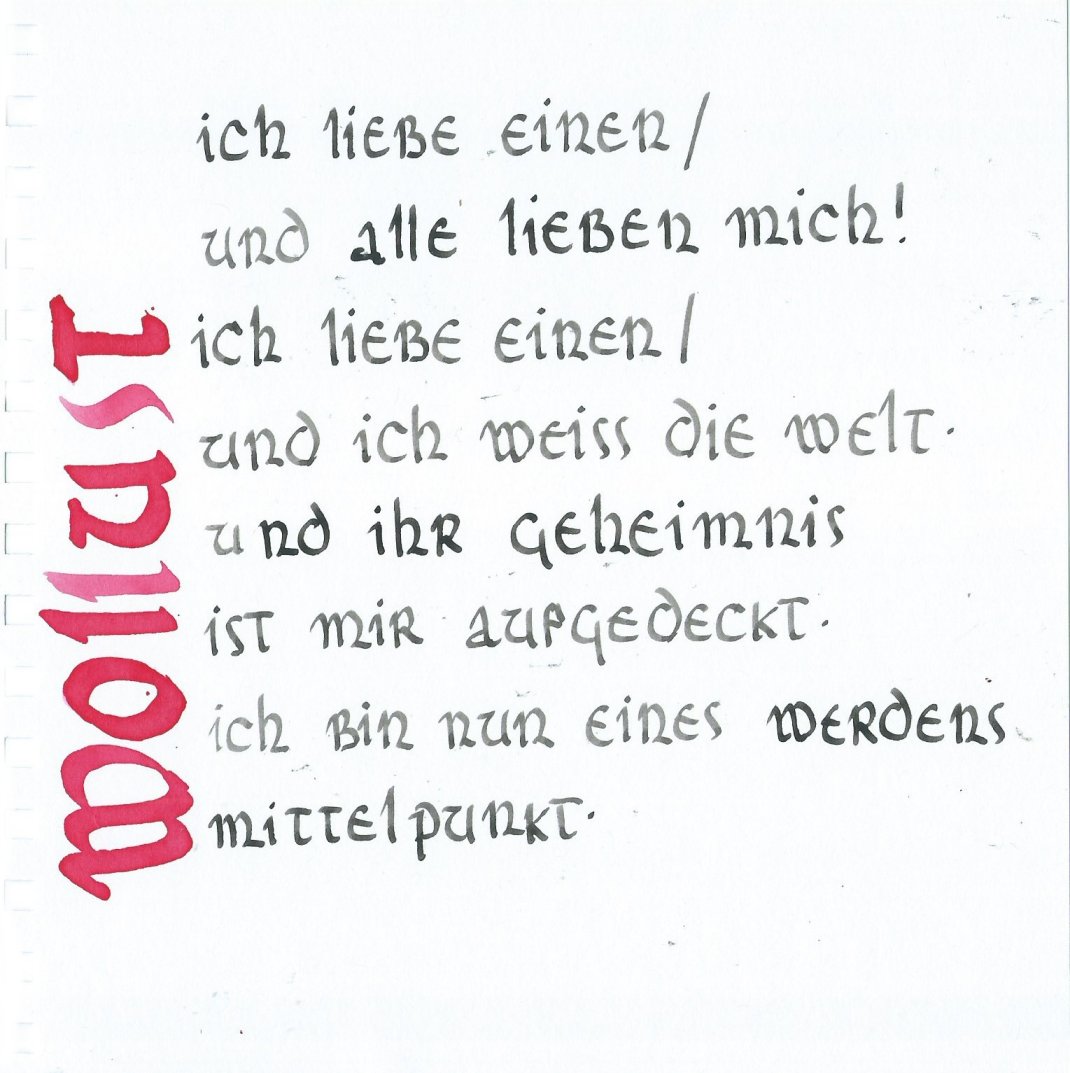 wollust
ich liebe einen/
und alle lieben mich!
ich liebe einen/
und ich weiss die welt.
und ihr geheimnis
ist mir aufgedeckt.
ich bin nun eines werdens
mittelpunkt.